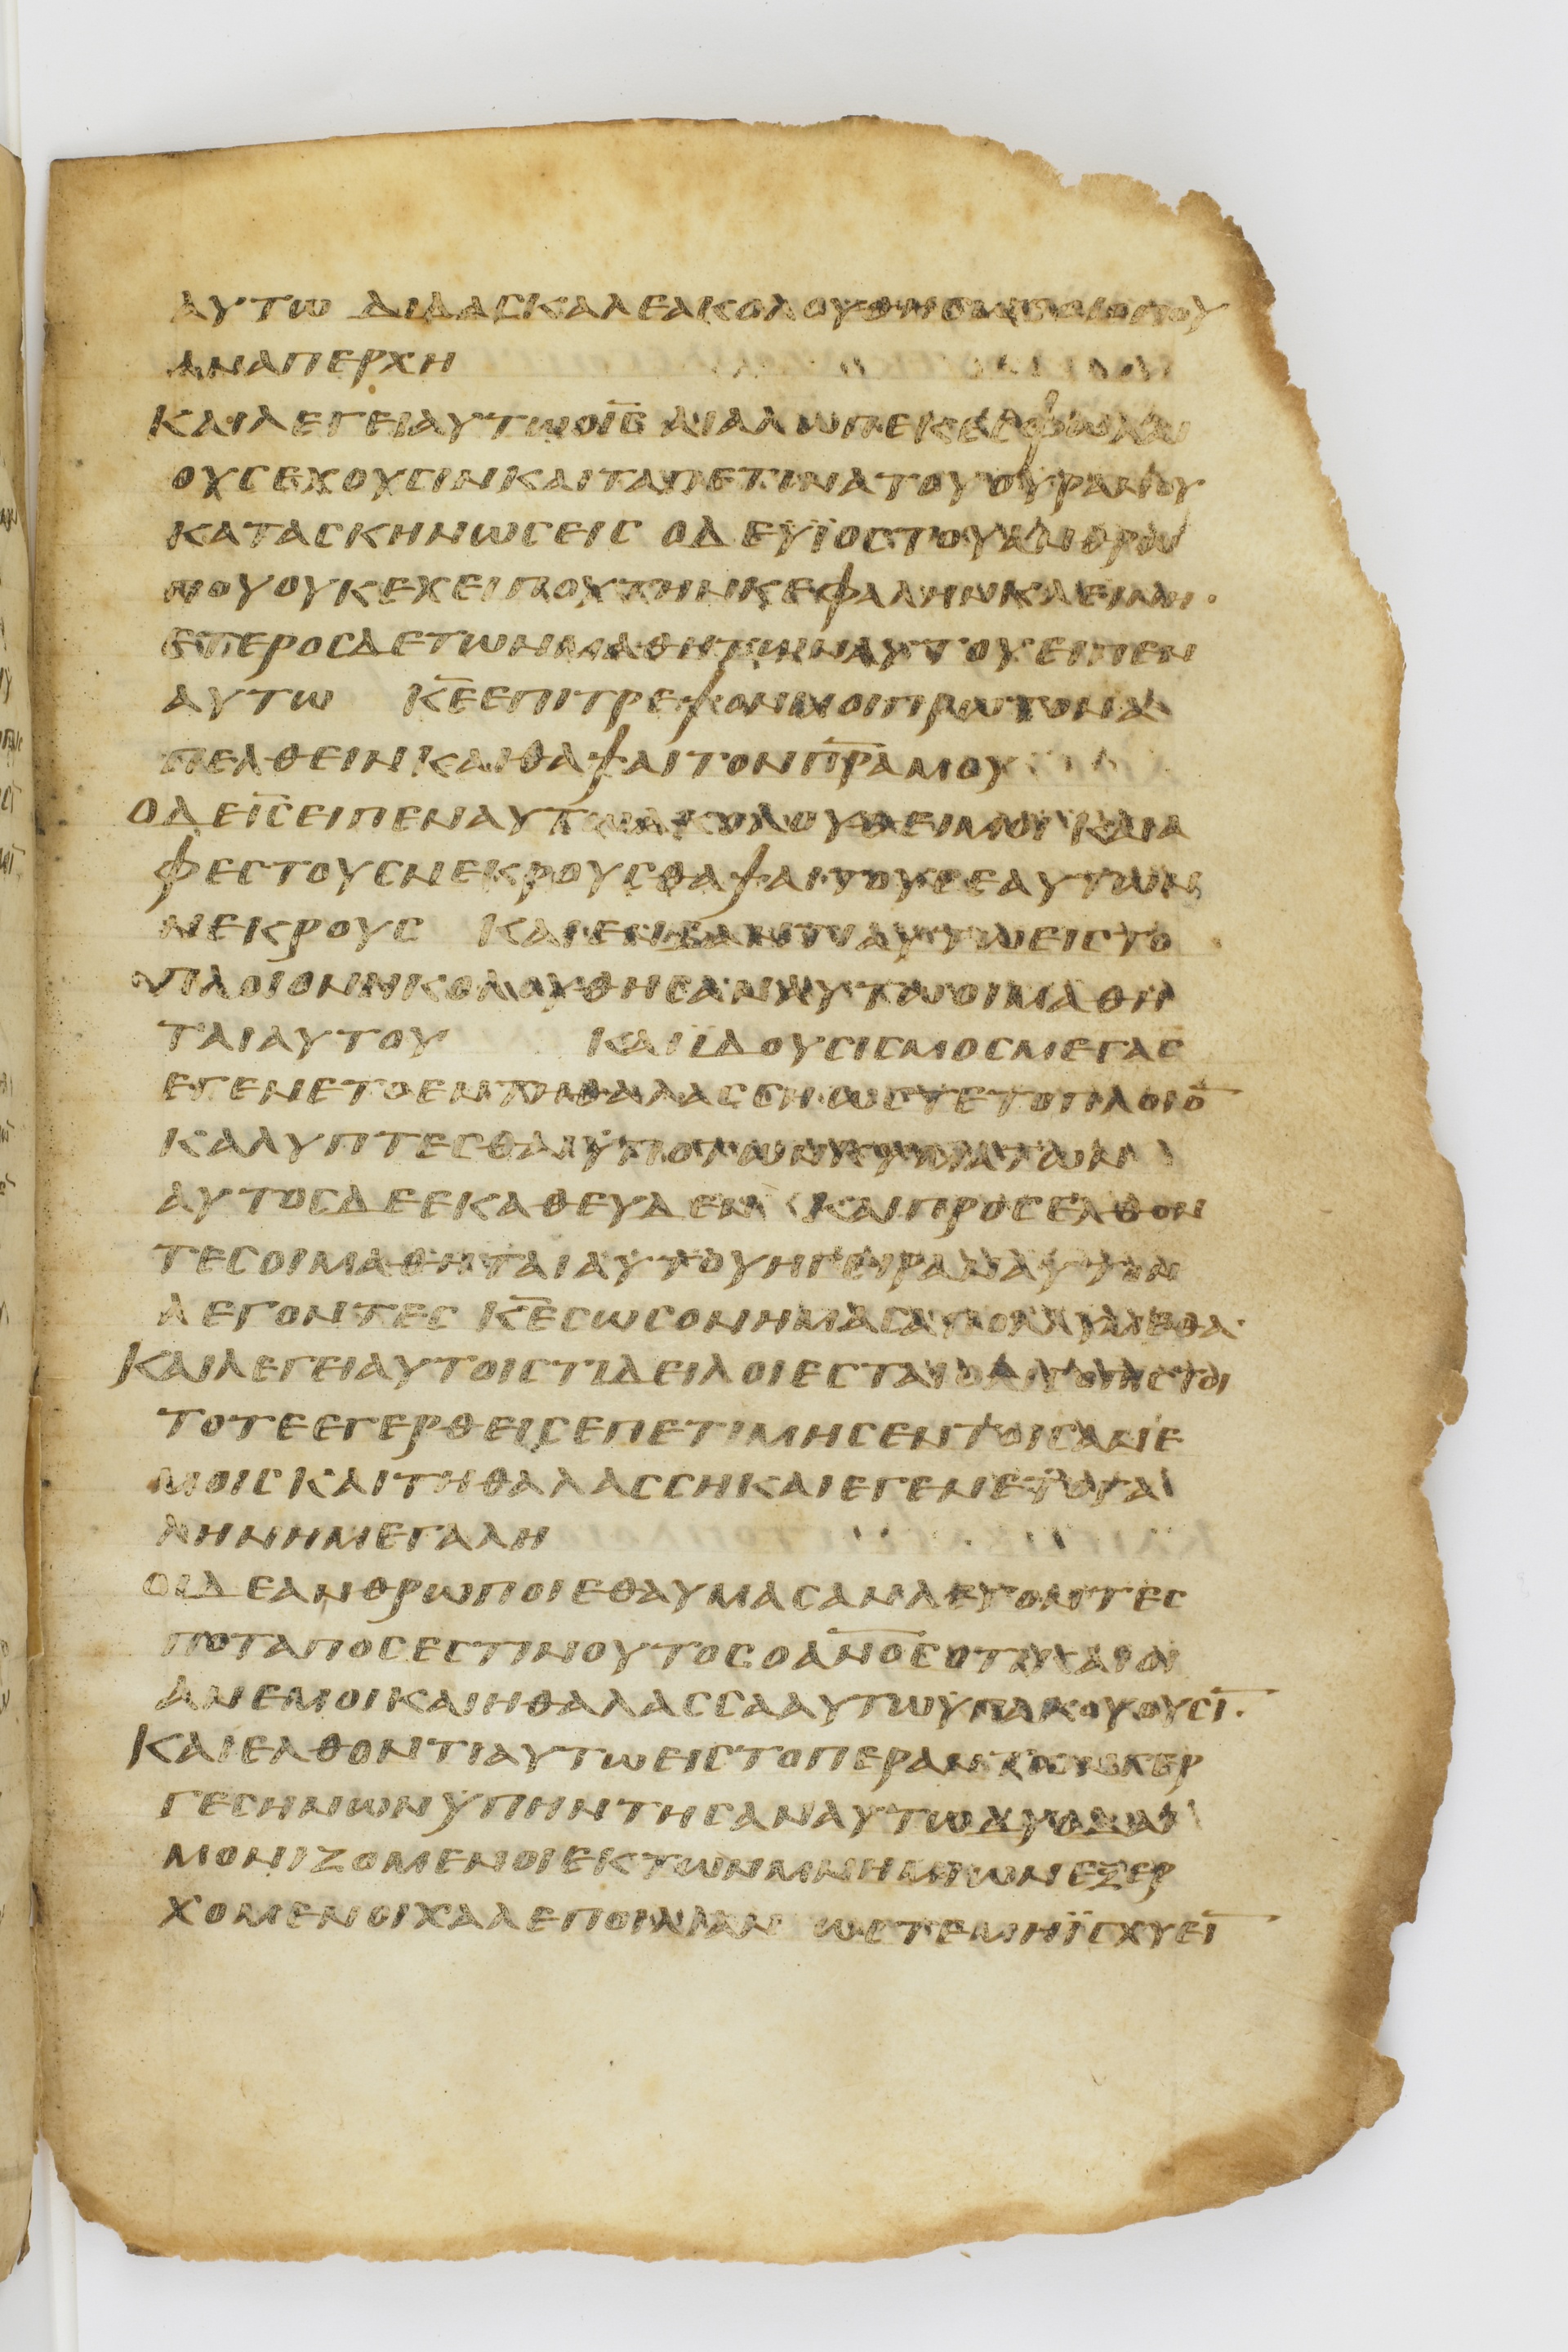 ΑΥΤΩ ΔΙΔΑϹΚΑΛΕΑΚΟΛΟΥΘΗϹΩϹΟΙΟΠΟΥ
ΑΝΑΠΕΡΧΗ
ΚΑΙΛΕΓΕΙΑΥΤΩΟΙ̅Ϲ̅ ΑΙΑΛΩΠΕΚΕϹΦΩΛΕ
ΟΥϹΕΧΟΥϹΙΝΚΑΙΤΑΠΕΤΙΝΑΤΟΥΟΥΡΑΝΟΥ
ΚΑΤΑϹΚΗΝΩϹΕΙϹ ΟΔΕΥΪΟϹΤΟΥΑΝΘΡΩ
ΠΟΥΟΥΚΕΧΕΙΠΟΥΤΗΝΚΕΦΑΛΗΝΚΛΕΙΝΗ·
ΕΤΕΡΟϹΔΕΤΩΝΜΑΘΗΤΩΝΑΥΤΟΥΕΙΠΕΝ
ΑΥΤΩ Κ̅Ε̅ΕΠΙΤΡΕΨΟΝΜΟΙΠΡΩΤΟΝΑ
ΠΕΛΘΕΙΝΚΑΙΘΑΨΑΙΤΟΝΠ̅Ρ̅Α̅ΜΟΥ
ΟΔΕΙ̅Ϲ̅ΕΙΠΕΝΑΥΤΩΑΚΟΛΟΥΘΕΙΜΟΙ ΚΑΙΑ
ΦΕϹΤΟΥϹΝΕΚΡΟΥϹΘΑΨΑΙΤΟΥϹΕΑΥΤΩΝ
ΝΕΚΡΟΥϹ ΚΑΙΕΜΒΑΝΤΙΑΥΤΩΕΙϹΤΟ
ΠΛΟΙΟΝΗΚΟΛΟΥΘΗϹΑΝΑΥΤΩΟΙΜΑΘΗ
ΤΑΙΑΥΤΟΥ ΚΑΙΪΔΟΥϹΙϹΜΟϹΜΕΓΑϹ
ΕΓΕΝΕΤΟΕΝΤΗΘΑΛΑϹϹΗ ΩϹΤΕΤΟΠΛΟΙΟ̅
ΚΑΛΥΠΤΕϹΘΑΙΫΠΟΤΩΝΚΥΜΑΤΩΝ
ΑΥΤΟϹΔΕΕΚΑΘΕΥΔΕΝ ΚΑΙΠΡΟϹΕΛΘΟΝ
ΤΕϹΟΙΜΑΘΗΤΑΙΑΥΤΟΥΗΓΕΙΡΑΝΑΥΤΟΝ
ΛΕΓΟΝΤΕϹ Κ̅Ε̅ϹΩϹΟΝΗΜΑϹΑΠΟΛΛΥΜΕΘΑ·
ΚΑΙΛΕΓΕΙΑΥΤΟΙϹΤΙΔΕΙΛΟΙΕϹΤΑΙΟΛΙΓΟΠΙϹΤΟΙ
ΤΟΤΕΕΓΕΡΘΕΙϹΕΠΕΤΙΜΗϹΕΝΤΟΙϹΑΝΕ
ΜΟΙϹΚΑΙΤΗΘΑΛΑϹϹΗΚΑΙΕΓΕΝΕΤΟΓΑ
ΛΗΝΗΜΕΓΑΛΗ
ΟΙΔΕΑΝΘΡΩΠΟΙΕΘΑΥΜΑϹΑΝΛΕΓΟΝΤΕϹ
ΠΟΤΑΠΟϹΕϹΤΙΝΟΥΤΟϹΟΑ̅Ν̅Ο̅Ϲ̅ΟΤΙΚΑΙΟΙ
ΑΝΕΜΟΙΚΑΙΗΘΑΛΑϹϹΑΑΥΤΩΫΠΑΚΟΥΟΥϹΙ̅·
ΚΑΙΕΛΘΟΝΤΙΑΥΤΩΕΙϹΤΟΠΕΡΑΝ
ΓΕϹΗΝΩΝΫΠΗΝΤΗϹΑΝΑΥΤΩΔΥΟΔΑΙ
ΜΟΝΙΖΟΜΕΝΟΙΕΚΤΩΝΜΝΗΜΙΩΝΕΞΕΡ
ΧΟΜΕΝΟΙΧΑΛΕΠΟΙΛΙΑΝ ΩϹΤΕΜΗΪϹΧΥΕΙ̅